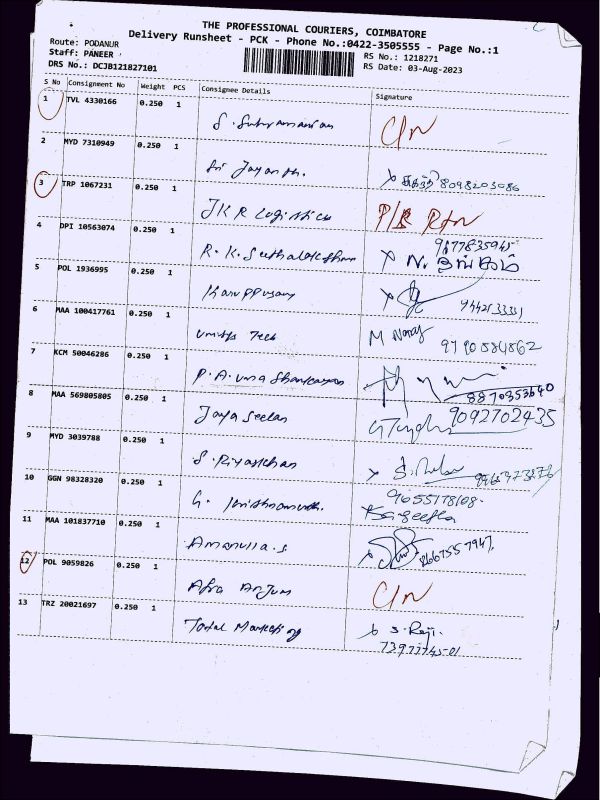 THE PROFESSIONAL COURIERS, COIMBATORE
Delivery Runsheet - PCK - Phone No.:0422-3505555 - Page No.:1
Route: PODANUR
Staff: PANEER
DRS No.: DCJB121827101
RS No.: 1218271
RS Date: 03-Aug-2023
S No Consignment No Weight PCS Consignee Details Signature
1 TVL 4330166 0.250 1
S. Subramanian C/N
2 MYD 7310949 0.250 1
Sri Jayanth. 8098203086
3 TRP 1067231 0.250 1
JKR Logistics P/R Rtn
4 DPI 10563074 0.250 1
R. K. 9177835945
N. தங்கம்
5 POL 1936995 0.250 1
Karuppusamy
6 MAA 100417761 0.250 1
Tech M
9790584862
7 KCM 50046286 0.250 1
P. A. uma Shankaran
8870353640
8 MAA 569805805 0.250 1
Jaya Seelan 9092702435
9 MYD 3039788 0.250 1
S. Riyaskhan
10 GGN 98328320 0.250 1
G. 9055178108.
Sangeetha
11 MAA 101837710 0.250 1
Amanulla. S 8667557947.
12 POL 9059826 0.250 1
Afra Anjum C/N
13 TRZ 20021697 0.250 1
Total Marketing S. Raji.